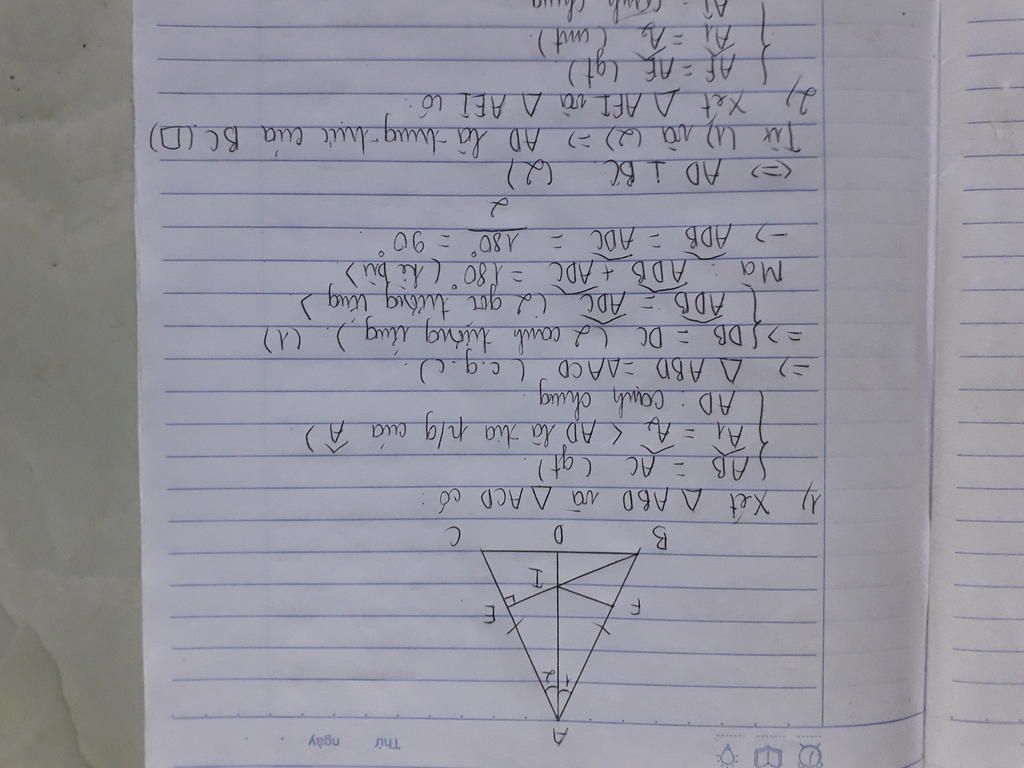 Thứ ngày
A
1 2
F E
I
B D C
1) Xét △ ABD và △ ACD có:
AB = AC (gt)
Â1 = Â2 < AD là tia p/g của Â)
AD : cạnh chung
=> △ ABD = △ACD (c.g.c)
=> DB = DC (2 cạnh tương ứng) (1)
ADB = ADC (2 góc tương ứng>
Mà : ADB + ADC = 180° (kề bù>
-> ADB = ADC = 180°/2 = 90°
<=> AD ⊥ BC (2)
Từ (1) và (2) => AD là trung trực của BC (D)
2) Xét △ AFI và △ AEI có:
AF = AE (gt)
Â1 = Â2 (cmt)
AI : cạnh chung